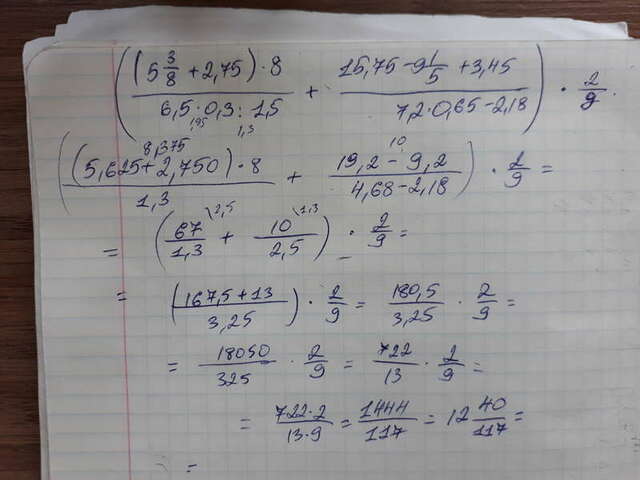 ((5 3/8 + 2,75) · 8 / 6,5 · 0,3 : 1,5 + 15,75 - 9 1/5 + 3,45 / 7,2 · 0,65 - 2,18) · 2/9.
1,95 1,3
8,375 10
((5,625 + 2,750) · 8 / 1,3 + 19,2 - 9,2 / 4,68 - 2,18) · 2/9 =
= (67/1,3 \2,5 + 10/2,5 \1,3) · 2/9 =
= (167,5 + 13 / 3,25) · 2/9 = 180,5/3,25 · 2/9 =
= 18050/325 · 2/9 = 722/13 · 2/9 =
= 722·2/13·9 = 1444/117 = 12 40/117 =
=